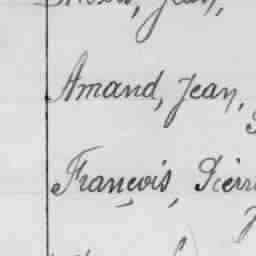 Jean,
Amand, Jean,
François, Pierre